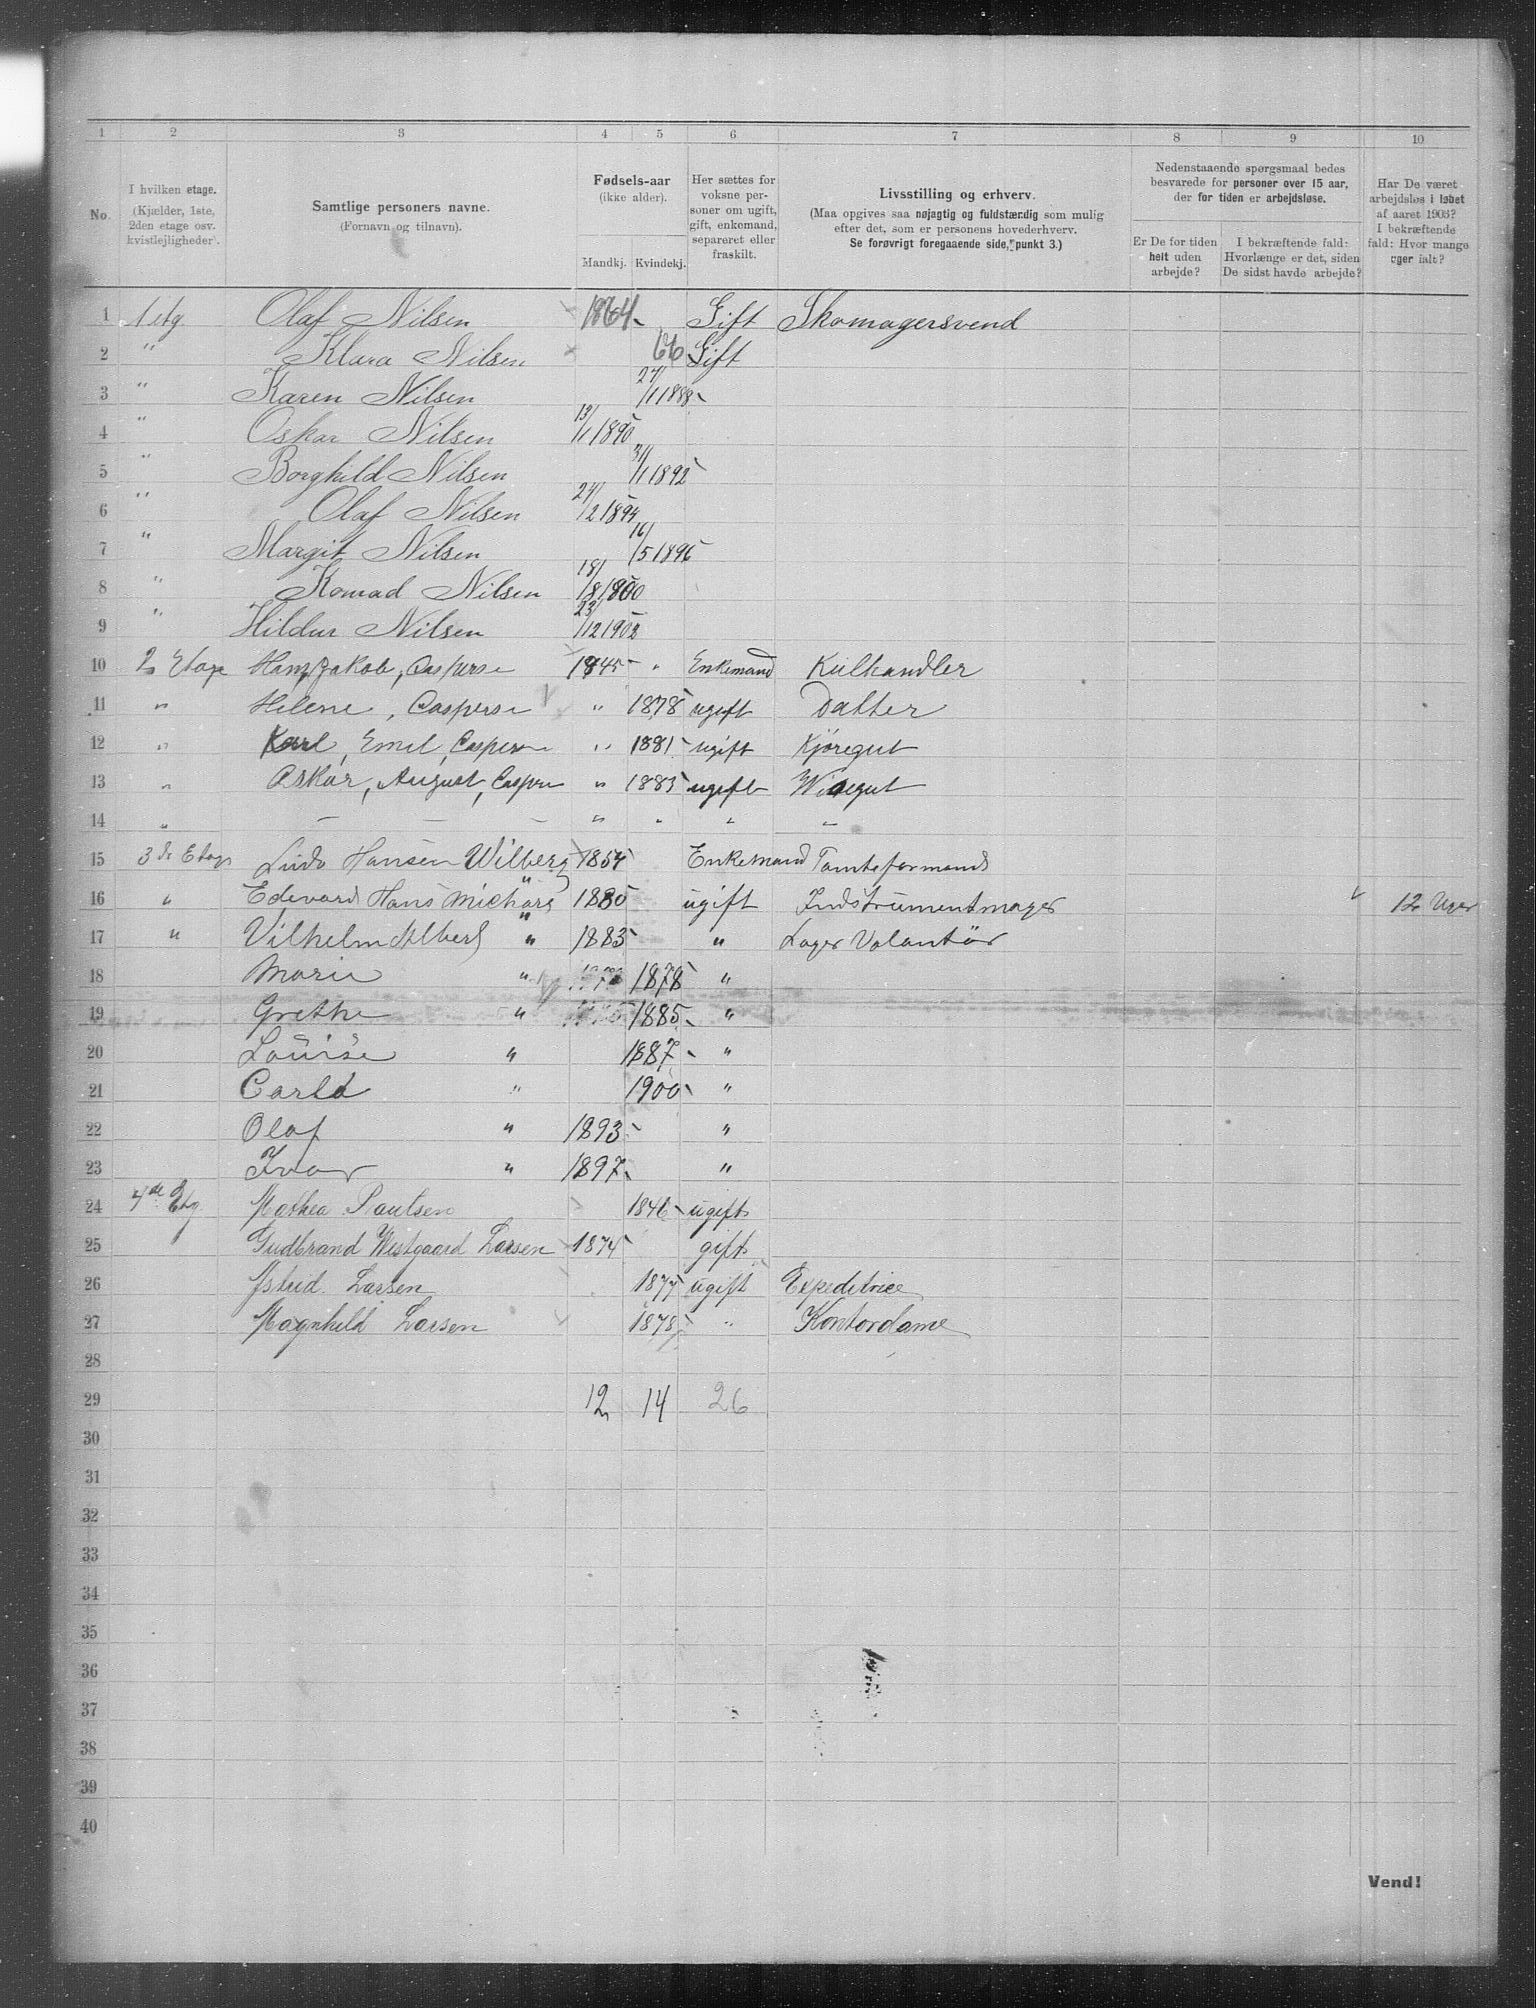 1 2 3 4 5 6 7 8 9 10
No. I hvilken etage. (Kjælder, 1ste, 2den etage osv. kvistlejligheder). Samtlige personers navne. (Fornavn og tilnavn). Fødsels-aar (ikke alder). Mandkj. Kvindekj. Her sættes for voksne personer om ugift, gift, enkemand, separeret eller fraskilt. Livsstilling og erhverv. (Maa opgives saa nøjagtig og fuldstærdig som mulig efter det, som er personens hovederhverv. Se forøvrigt foregaaende side, punkt 3.) Nedenstaaende spørgsmaal bedes besvarede for personer over 15 aar, der for tiden er arbejdsløse. Er De for tiden helt uden arbejde? I bekræftende fald: Hvorlænge er det, siden De sidst havde arbejde? Har De været arbejdsløs i løbet af aaret 1903? I bekræftende fald: Hvor mange uger ialt?
1 1 etg. Olaf Nilsen 1864 Gift Skomagersvend
2 " Klara Nilsen 66 Gift
3 " Karen Nilsen 27/1 1888
4 " Oskar Nilsen 13/1 1890
5 " Borghild Nilsen 31/1 1892
6 " Olaf Nilsen 24/2 1894
7 " Margit Nilsen 16/5 1896
8 " Konrad Nilsen 18/8 1900
9 " Hildur Nilsen 23/12 1902
10 2 Etage Hans Jakob, Casperse 1845 " Enkemand Kulhandler
11 " Helene, Casperse " 1878 ugift Datter
12 " Karl, Emil, Caspersen " 1881 ugift Kjøregut
13 " Oskar, August, Caspersen " 1883 ugift Visegut
14 " — — " " " "
15 3de Etage Hansen Wilberg 1854 Enkemand Tomteformand
16 " Edevard Hans Michael " 1880 ugift Instrumentmager 12 Uger
17 " Vilhelm Albert " 1883 " Lager Volantør
18 Marie " 1878 "
19 Grethe " 1885 "
20 Louise " 1887 "
21 Carla " 1900 "
22 Olaf " 1893 "
23 Ivar " 1897 "
24 4de Etg Mathea Paulsen 1846 ugift
25 Gudbrand Westgaard Larsen 1874 gift
26 Astrid Larsen 1877 ugift Expeditrice
27 Magnhild Larsen 1878 " Kontordame
28
29 12 14 26
30
31
32
33
34
35
36
37
38
39
40
Vend!